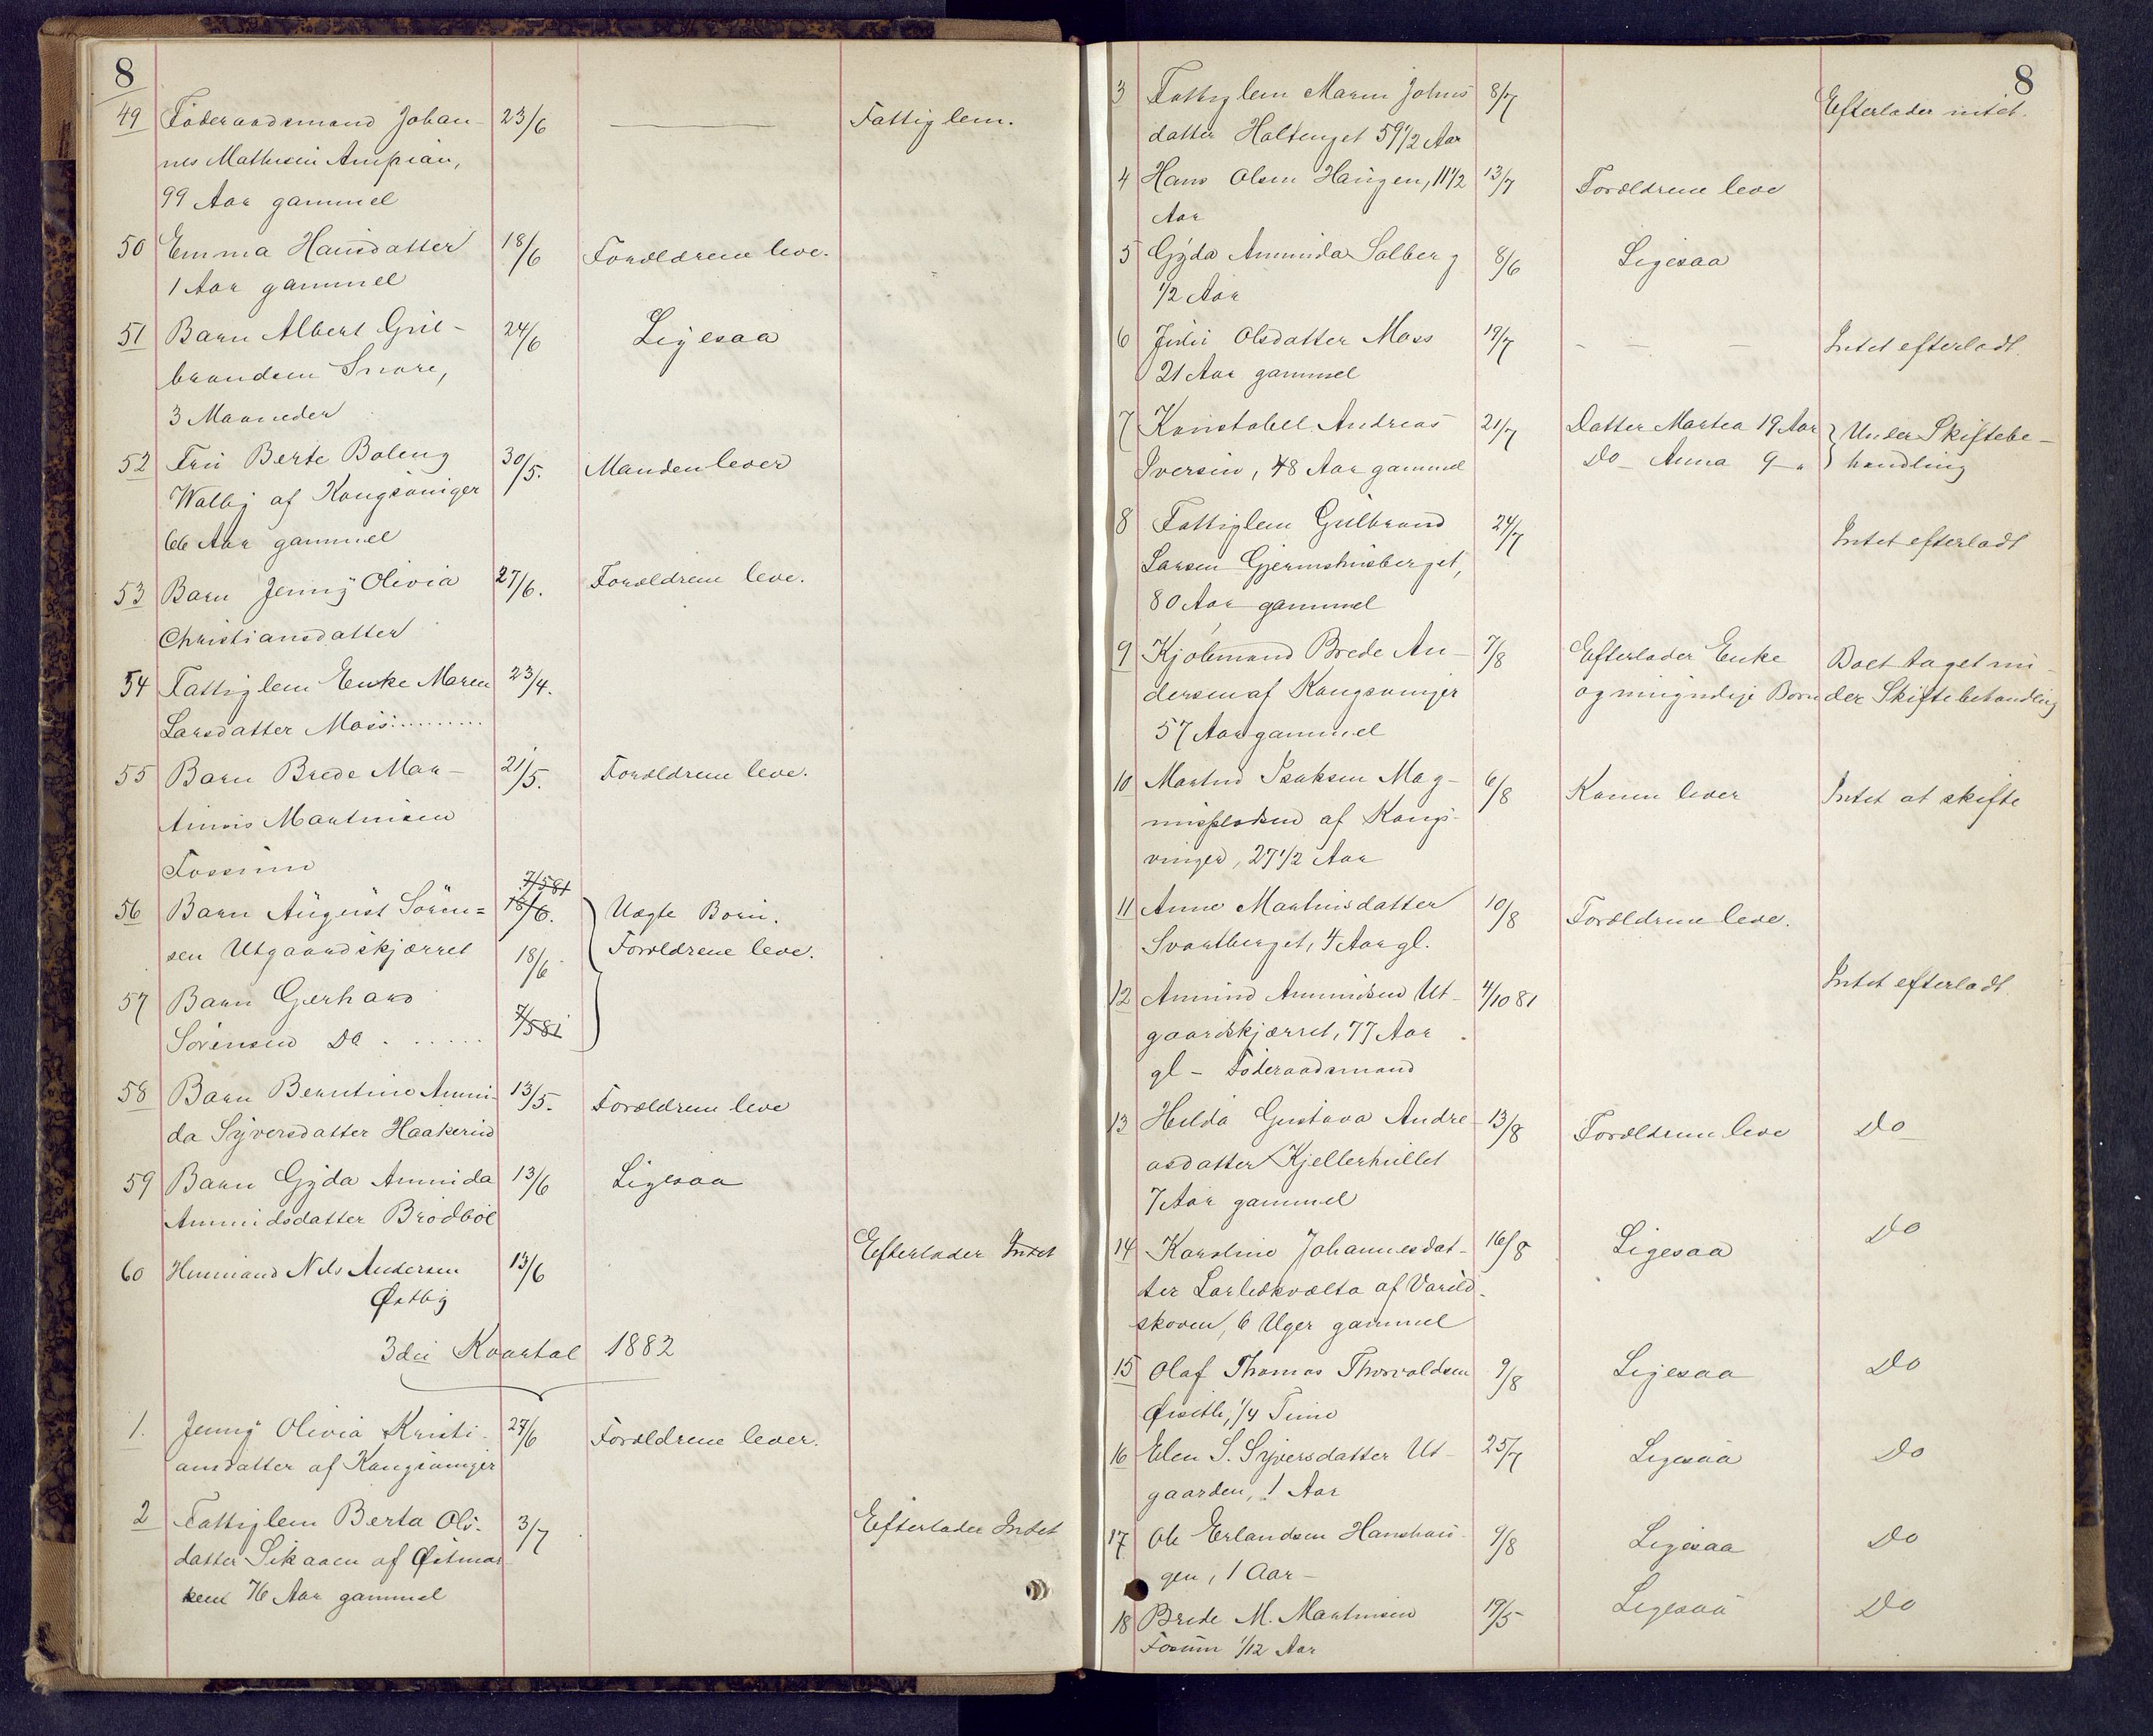 8
49 Föderaadsmand Johan- 23/6 Fattiglem.
nes Mathisen Ampian,
99 Aar gammel
50 Emma Hansdatter 18/6 Forældrene leve.
1 Aar gammel
51 Barn Albert Gul- 24/6 Ligesaa
brandsen Snare,
3 Maaneder
52 Fru Berte Boleng 30/5. Manden lever
Walby af Kongsvinger
66 Aar gammel
53 Barn Jenny Olivia 27/6. Forældrene leve.
Christiansdatter
54 Fattiglem Enke Maren 23/4.
Larsdatter Moss
55 Barn Brede Mar- 21/5. Forældrene leve.
Martinsen
Fossum
7/5 81
56 Barn August Sören= 18/6. Uægte Börn.
sen Utgaardskjærret 18/6 Forældrene leve.
57 Barn Gerhard
Sörensen Do 7/5 81
58 Barn Berntine Amun- 13/5. Forældrene leve
da Syversdatter Haakerud
59 Barn Gyda Amunda 13/6 Ligesaa
Amundsdatter Brödböl
60 Huusmand Nils Andersen 13/6 Efterlader Intet
Østby
3die Kvartal 1882
1. Jenny Olivia Kristi- 27/6 Forældrene lever.
ansdatter af Kongsvinger
2 Fattiglem Berta Ols- 3/7 Efterlader Intet
datter Sikaaen af Østmar
ken 76 Aar gammel
8
3 Fattiglem Maren Johns 8/7 Efterlader intet.
datter Holtenget 59 1/2 Aar
4 Hans Olsen Haugen, 11 1/2 13/7 Forældrene leve
Aar
5 Gyda Amunda Solberg 8/6 Ligesaa
1/2 Aar
6 Julie Olsdatter Moss 19/7 - - - Intet efterladt.
21 Aar gammel
7 Konstabel Andreas 21/7 Datter Martea 19 Aar } Under Skiftebe-
Iversen, 48 Aar gammel Do - Anna 9 - " } handling
8 Fattiglem Gulbrand 24/7 Intet efterladt
Larsen Gjermshusberget,
80 Aar gammel
9 Kjöbmand Brede An- 7/8 Efterlader Enke Boet taget un-
dersen af Kongsvinger og myndige Börn der Skiftebehandling
57 Aar gammel
10 Martin Isaksen Mag- 6/8 Konen lever Intet at skifte
nuspladsen af Kongs-
vinger, 27 1/2 Aar
11 Anne Martinsdatter 10/8 Forældrene leve.
Svartberget, 4 Aar gl.
12 Amund Amundsen Ut- 4/10 81 Intet efterladt.
gaardskjærret, 77 Aar
gl - Föderaadsmand
13 Hilda Gustava Andre- 13/8 Forældrene leve Do
asdatter Kjellerhullet
7 Aar gammel
14 Karoline Johannesdat- 16/8 Ligesaa Do
ter af Varild-
skoven, 6 Uger gammel
15 Olaf Thomas Thorvaldsen 9/8 Ligesaa Do
1/4 Time
16 Elen S. Syversdatter Ut- 25/7 Ligesaa Do
gaarden, 1 Aar
17 Ole Erlandsen Hanshau- 9/8 Ligesaa Do
gen, 1 Aar -
18 Brede M. Martinsen 19/5 Ligesaa Do
Fosum 1/12 Aar